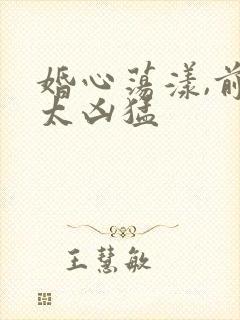 婚心荡漾,前
太凶猛
王慧敏